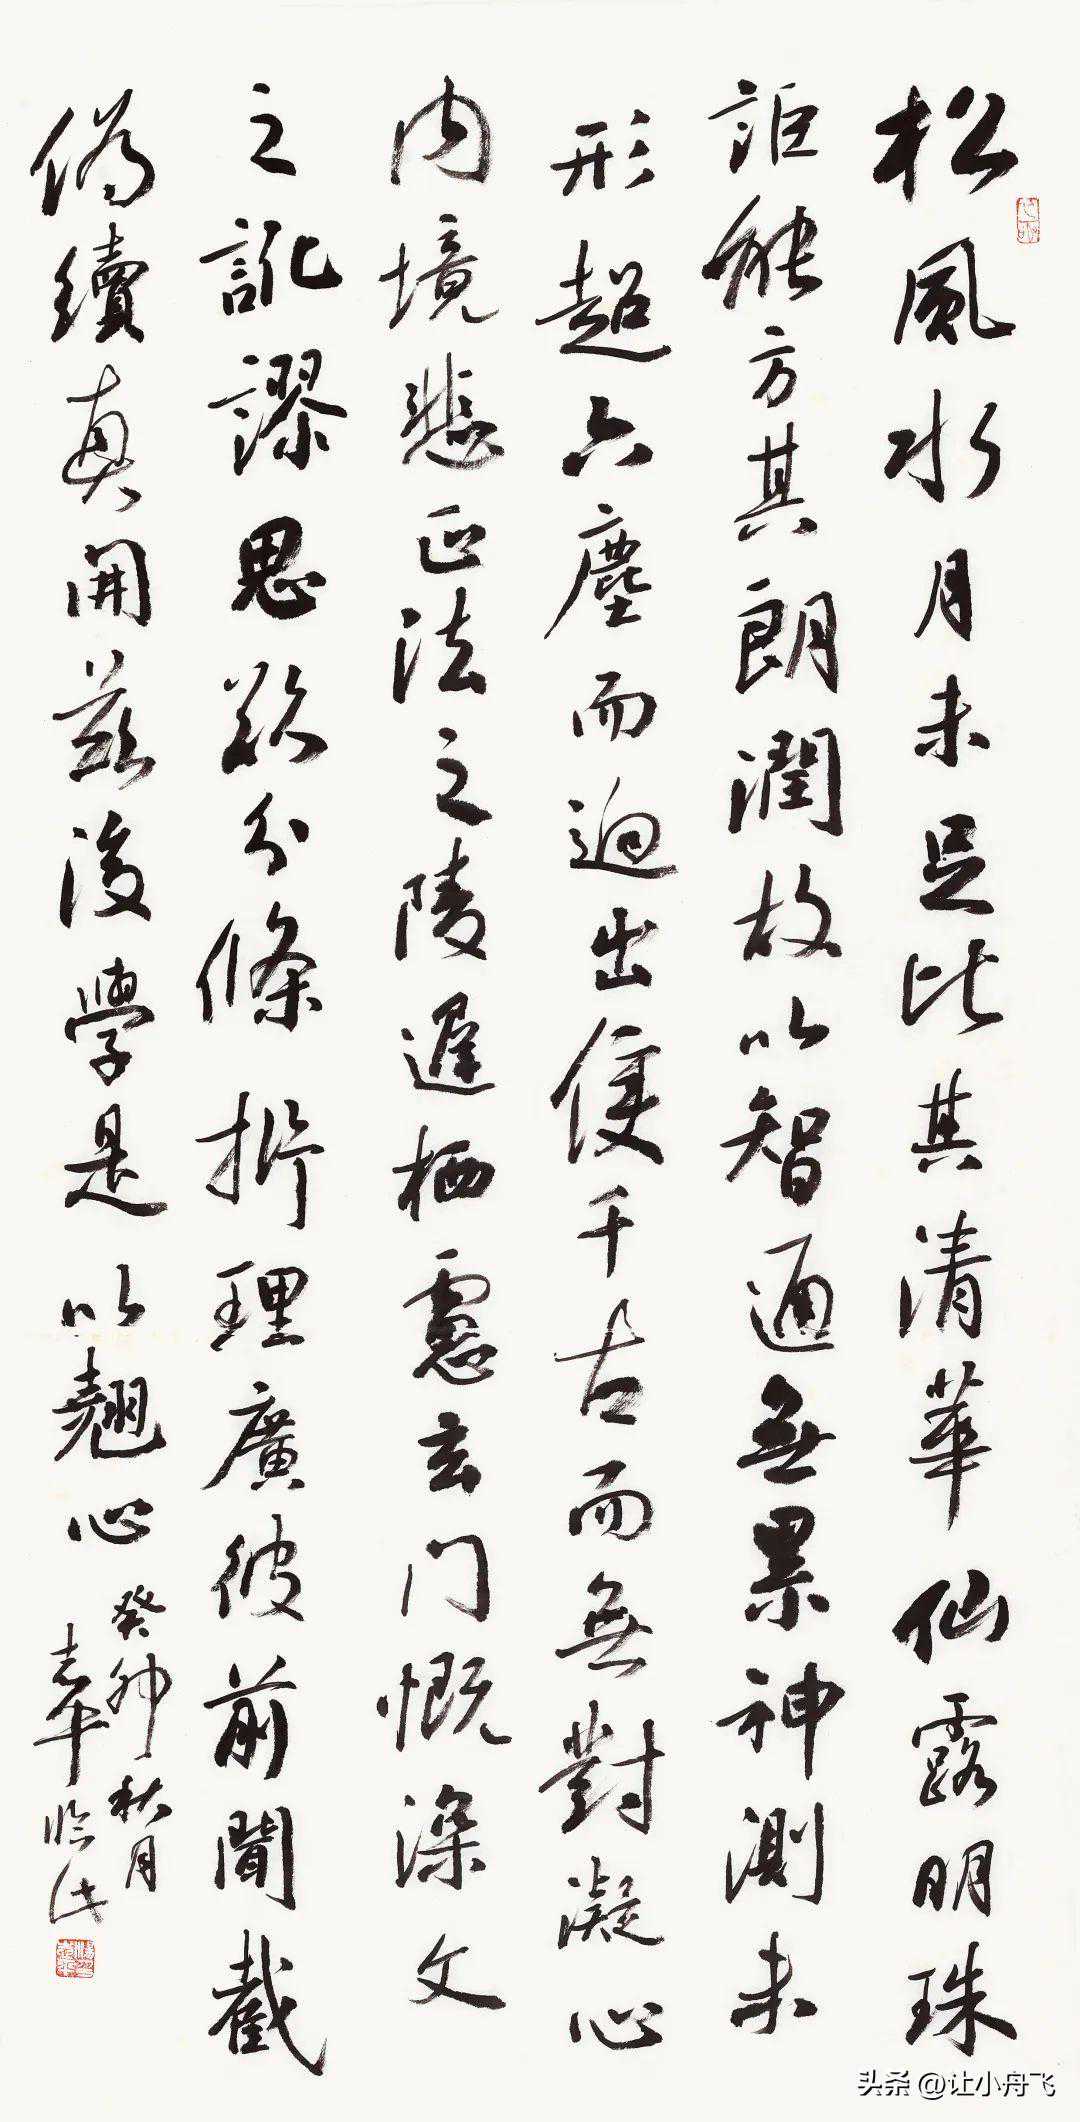 松風水月未足比其清華仙露明珠
詎能方其朗潤故以智通無累神測未
形超六塵而迥出隻千古而無對凝心
内境悲正法之陵遲栖慮玄門慨深文
之訛謬思欲分條析理廣彼前聞截
偽續真開茲後學是以翹心
癸卯秋月
臨池
头条 @让小舟飞